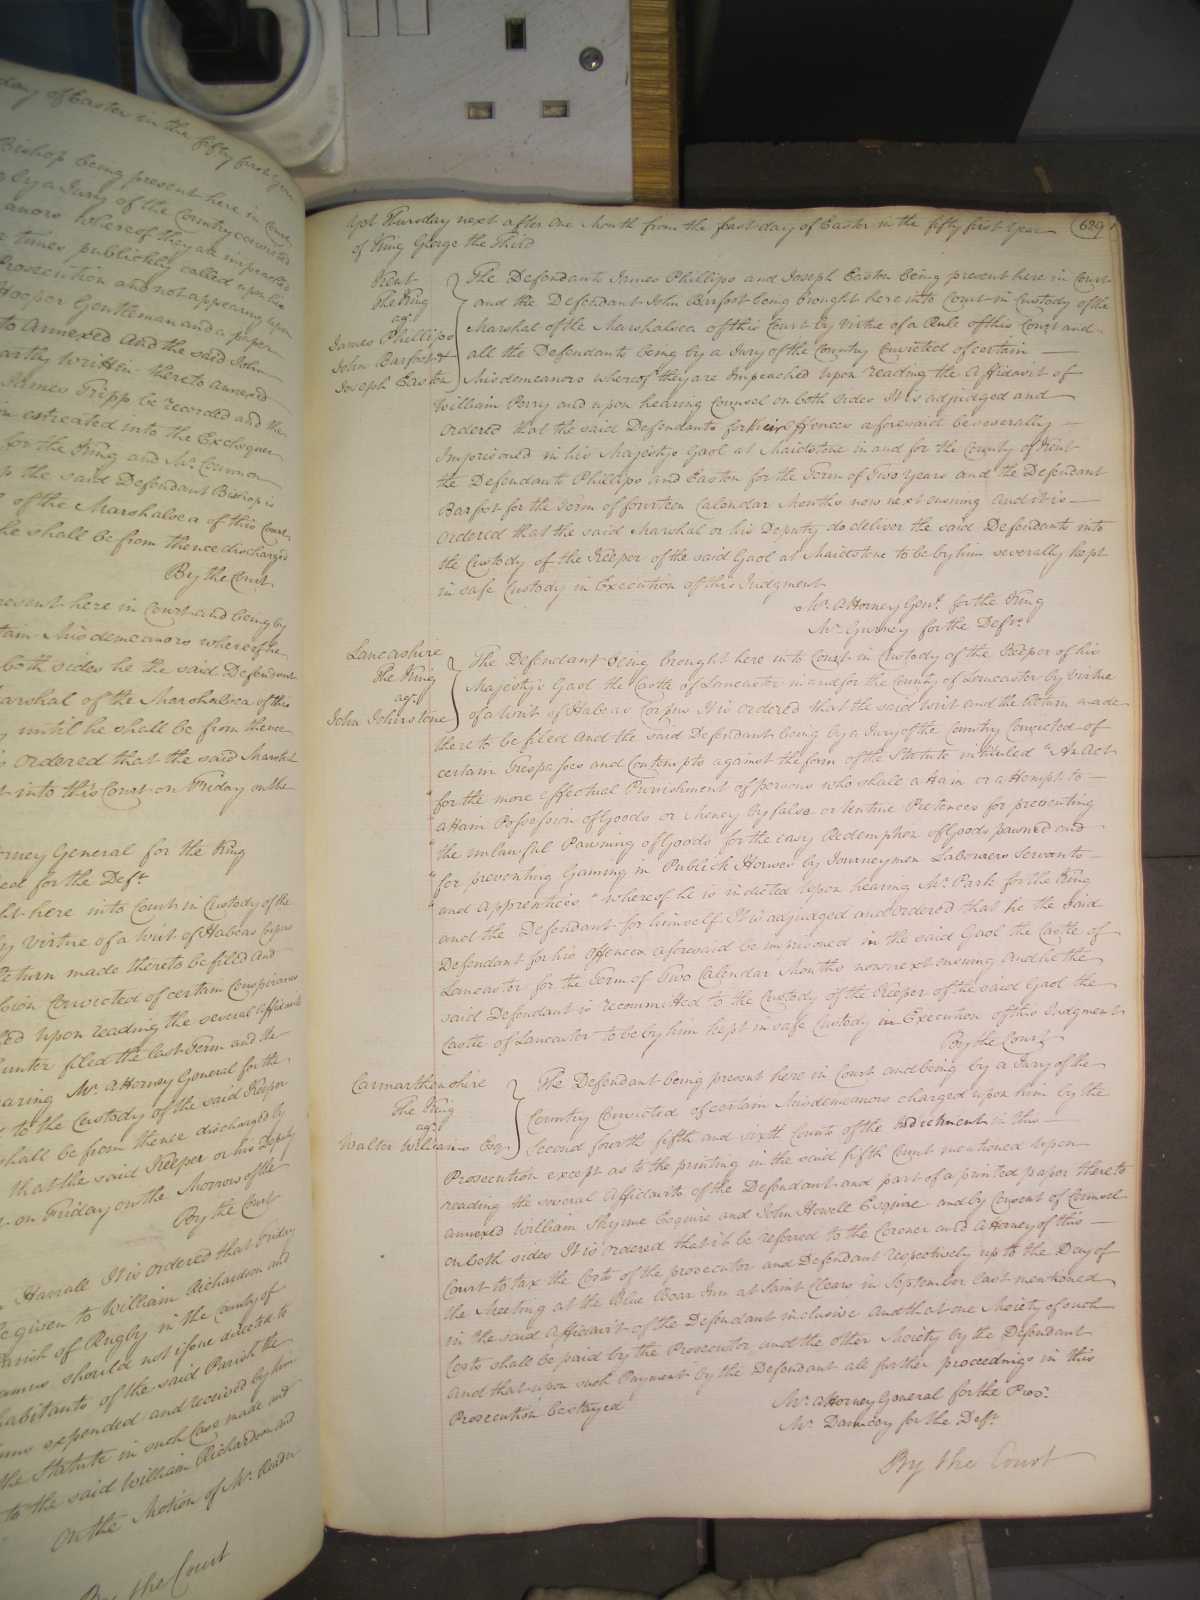 day of Easter in the fifty first year
Bishop being present here in Court
by a Jury of the Country convicted
anors whereof they are impeached
times publickly called upon his
Prosecution and not appearing upon
Hooper Gentleman and a paper
to Annexed And the said John
partly written thereto annexed
James Tripp be recorded and the
in estreated into the Exchequer
for the King and Mr. Common
the said Defendant Bishop is
of the Marshalsea of this Court
he shall be from thence discharged
By the Court
resent here in Court and being by
tain Misdemeanors whereof he
both sides he the said Defendant
arshal of the Marshalsea of this
until he shall be from thence
ordered that the said Marshal
into this Court on Friday on the
orney General for the King
for the Deft.
ht here into Court in Custody of the
by virtue of a Writ of Habeas Corpus
Return made thereto be filed and
Convicted of certain Conspiracies
upon reading the several Affidavits
unter filed the last Term and the
aring Mr. Attorney General for the
to the Custody of the said Keeper
shall be from thence discharged by
that the said Keeper or his Deputy
on Friday on the Morrow of the
By the Court
Harrall It is ordered that
be given to William Richardson and
Parish of Rugby in the County of
should not issue directed to
habitants of the said Parish the
expended and received by him
the Statute in such Case made and
to the said William Richardson and
On the Motion of Mr. Reader
By the Court
Yet Thursday next after one Month from the feast day of Easter in the fifty first Year 629
of King George the Third
Kent
The King
agt.
James Phillips
John Barfoot &
Joseph Easton
The Defendants James Phillips and Joseph Easton being present here in Court
and the Defendant John Barfoot being brought here into Court in Custody of the
Marshal of the Marshalsea of this Court by virtue of a Rule of this Court and
all the Defendants being by a Jury of the Country Convicted of certain
Misdemeanors whereof they are Impeached upon reading the Affidavit of
William Perry and upon hearing Counsel on both sides It is adjudged and
Ordered that the said Defendants for their Offences aforesaid be severally
Imprisoned in his Majestys Gaol at Maidstone in and for the County of Kent
the Defendants Phillips and Easton for the Term of Two Years and the Defendant
Barfoot for the Term of fourteen Calendar Months now next ensuing And it is
Ordered that the said Marshal or his Deputy do deliver the said Defendants into
the Custody of the Keeper of the said Gaol at Maidstone to be by him severally kept
in safe Custody in Execution of this Judgment
Mr. Attorney Genl. for the King
Mr. Gurney for the Defts.
Lancashire
The King
agt.
John Johnstone
The Defendant being brought here into Court in Custody of the Keeper of his
Majestys Gaol the Castle of Lancaster in and for the County of Lancaster by virtue
of a Writ of Habeas Corpus It is ordered that the said Writ and the Return made
thereto be filed And the said Defendant being by a Jury of the Country Convicted of
certain Trespasses and Contempts against the form of the Statute intituled "An Act
"for the more effectual Punishment of persons who shall attain or attempt to
"attain Possession of Goods or Money by false or Untrue Pretences for preventing
"the unlawful Pawning of Goods for the easy Redemption of Goods pawned and
"for preventing Gaming in Publick Houses by Journeymen Labourers Servants
"and Apprentices" whereof he is indicted Upon hearing Mr. Park for the King
and the Defendant for himself It is adjudged and ordered that he the said
Defendant for his Offences aforesaid be imprisoned in the said Gaol the Castle of
Lancaster for the Term of Two Calendar Months now next ensuing And he the
said Defendant is recommitted to the Custody of the Keeper of the said Gaol the
Castle of Lancaster to be by him kept in safe Custody in Execution of this Judgment
By the Court
Carmarthenshire
The King
agt.
Walter Williams Esqr.
The Defendant being present here in Court and being by a Jury of the
Country Convicted of certain Misdemeanors charged upon him by the
Second fourth fifth and sixth Counts of the Indictment in this
Prosecution except as to the printing in the said fifth Count mentioned Upon
reading the several Affidavits of the Defendant and part of a printed paper thereto
annexed William Skyrme Esquire and John Howell Esquire and by Consent of Counsel
on both sides It is ordered that it be referred to the Coroner and Attorney of this
Court to tax the Costs of the prosecutor and Defendant respectively up to the Day of
the Meeting at the Blue Boar Inn at Saint Clears in September last mentioned
in the said Affidavit of the Defendant inclusive And that one Moiety of such
Costs shall be paid by the Prosecutor and the other Moiety by the Defendant
And that upon such Payment by the Defendant all further proceedings in this
Prosecution be stayed
Mr. Attorney General for the Pros.
Mr. Dauncey for the Deft.
By the Court